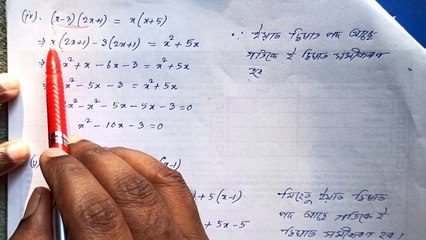 (iv). (x-3)(2x+1) = x(x+5)
⇒ x(2x+1) - 3(2x+1) = x²+5x
x² + x - 6x - 3 = x²+5x
x² - 5x - 3 = x²+5x
x² - x² - 5x - 5x - 3 = 0
x² - 10x - 3 = 0
∴ ইয়াত দ্বিঘাত পদ আছে
গতিকে ই দ্বিঘাত সমীকৰণ
হব
(v)
(x-1)
+ 5(x-1)
+ 5x - 5
যিহেতু ইয়াত দ্বিঘাত
পদ আছে গতিকে ই
দ্বিঘাত সমীকৰণ হব।